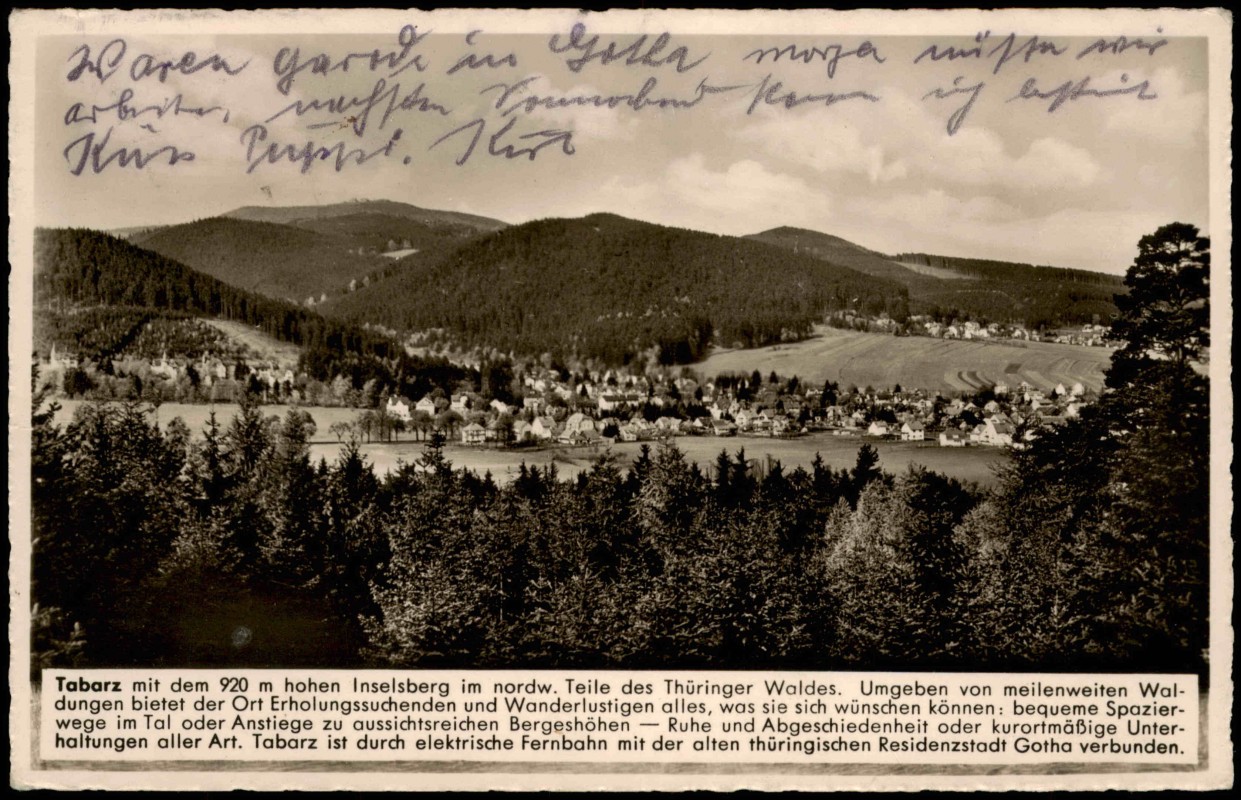 Waren gerade in Gotha morgen müssen wir
arbeiten, nächsten Sonnabend komm ich bestimmt
Kurt
Tabarz mit dem 920 m hohen Inselsberg im nordw. Teile des Thüringer Waldes. Umgeben von meilenweiten Wal-
dungen bietet der Ort Erholungssuchenden und Wanderlustigen alles, was sie sich wünschen können: bequeme Spazier-
wege im Tal oder Anstiege zu aussichtsreichen Bergeshöhen — Ruhe und Abgeschiedenheit oder kurortmäßige Unter-
haltungen aller Art. Tabarz ist durch elektrische Fernbahn mit der alten thüringischen Residenzstadt Gotha verbunden.